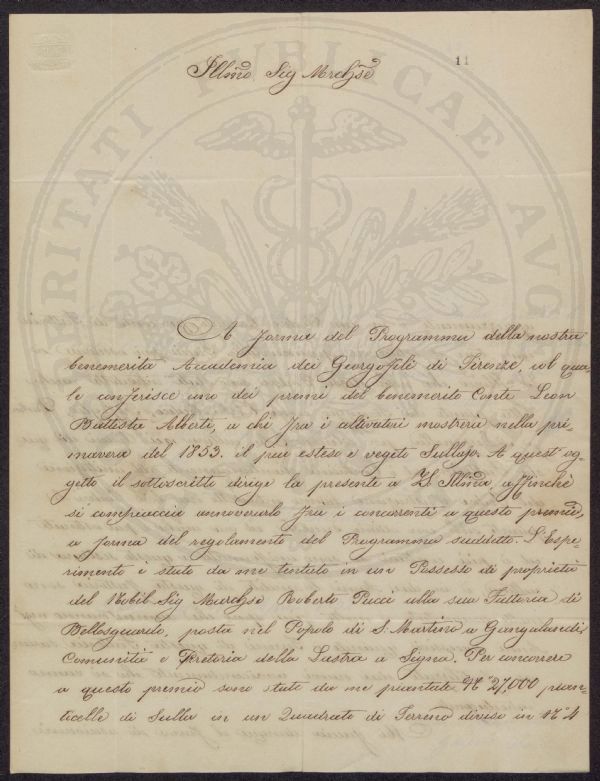 11
Illmo Sig Mrchse
PROSPERITATI PUBLICAE AUG
A forma del Programma della nostra
benemerita Accademia dei Georgofili di Firenze, col qua=
le conferisce uno dei premi del benemerito Conte Leon
Battista Alberti, a chi fra i cultivatori mostrerà nella pri=
mavera del 1853. il più esteso e vegeto Sullajo. A quest'og=
getto il sottoscritto dirige la presente a VS Illma, affinche
si compiaccia annoverarlo fra i concorrenti a questo premio,
a forma del regolamento del Programma suddetto. L'Espe=
rimento è stato da me tentato in un Possesso di proprietà
del Nobil Sig Marchse Roberto Pucci alla sua Fattoria di
Bellosguardo, posta nel Popolo di S. Martino a Gangalandi,
Comunità e Pretoria della Lastra a Signa. Per concorrere
a questo premio sono state da me piantate No 27,000 pian=
ticelle di Sulla in un Quadrato di Terreno diviso in No 4